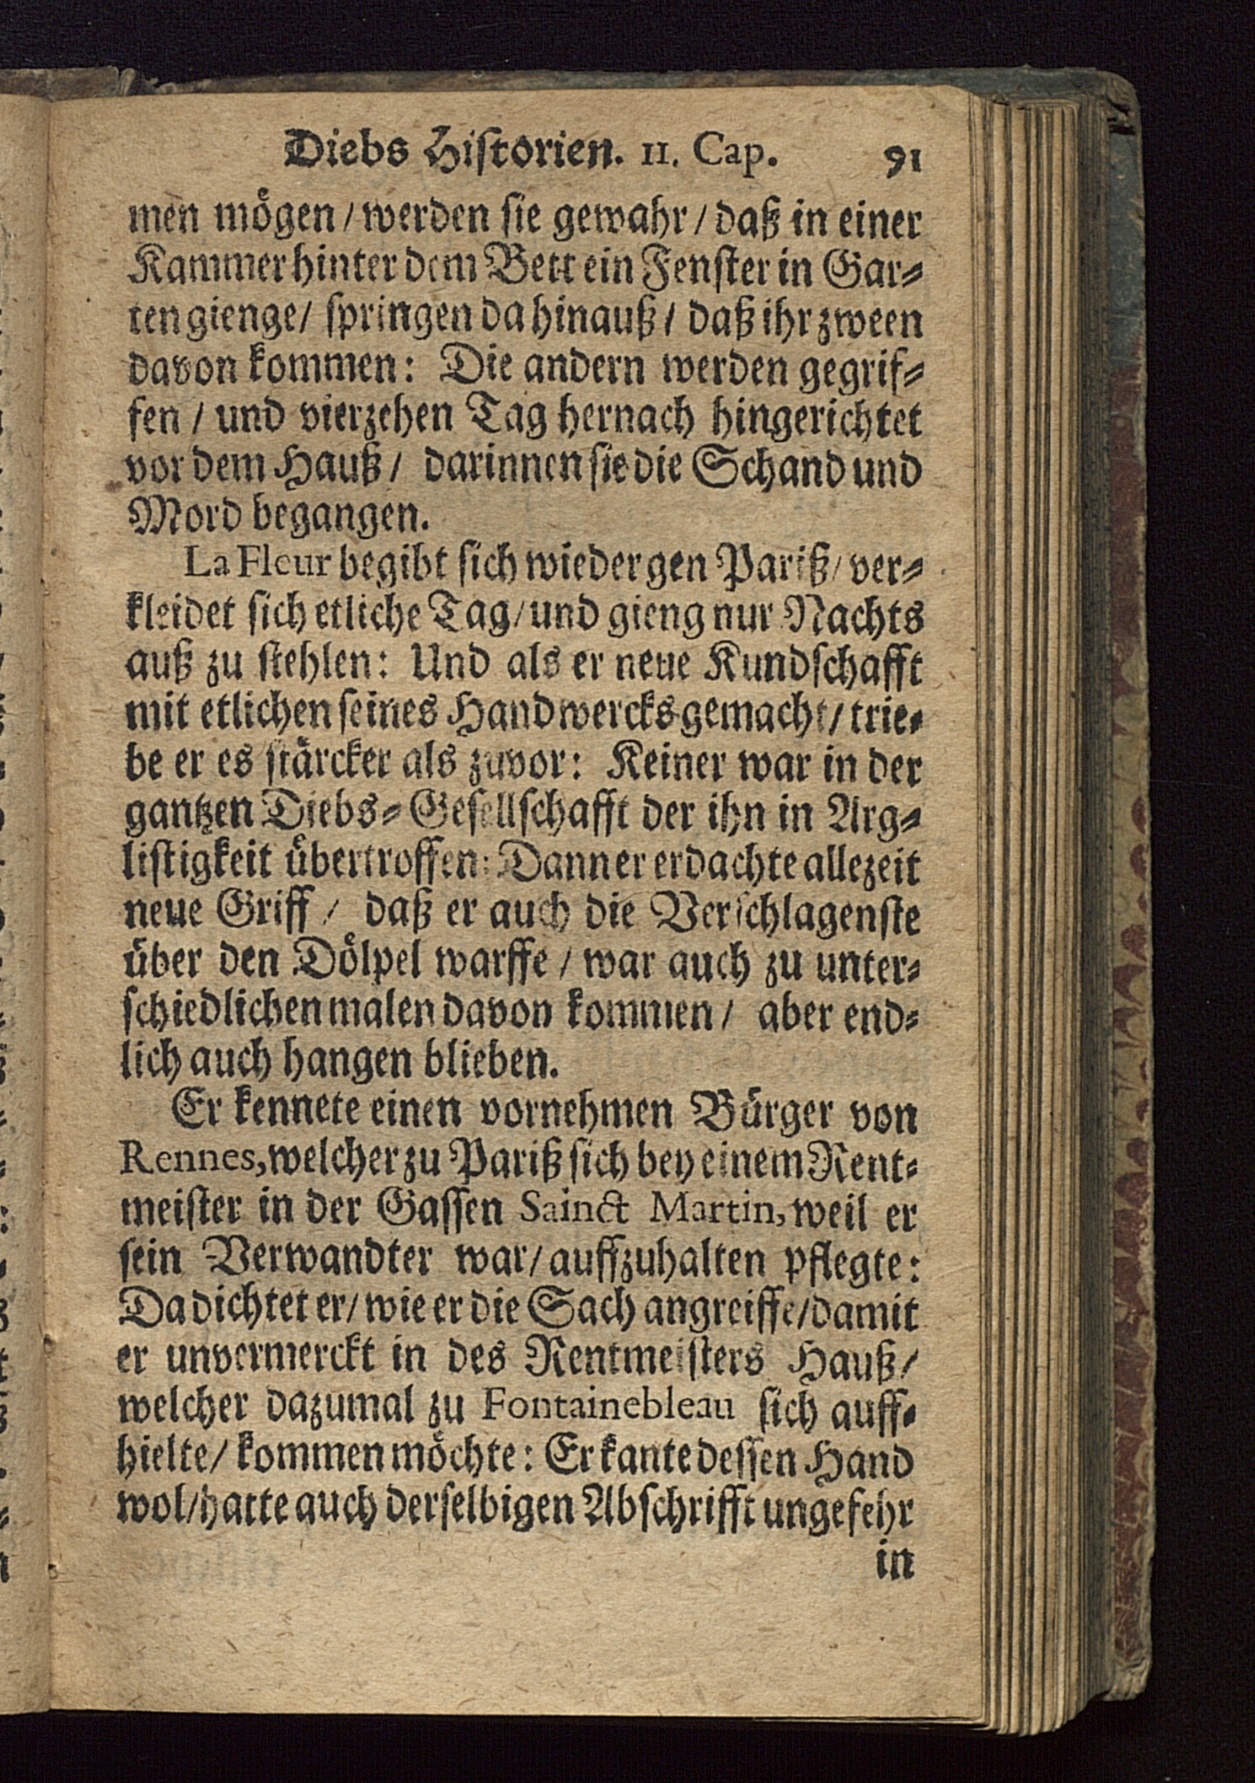 Diebs Historien. II. Cap. 91
men mögen / werden sie gewahr / daß in einer
Kammer hinter dem Bett ein Fenster in Gar⸗
ten gienge / springen da hinauß / daß ihr zween
davon kommen: Die andern werden gegrif⸗
fen / und vierzehen Tag hernach hingerichtet
vor dem Hauß / darinnen sie die Schand und
Mord begangen.
La Fleur begibt sich wieder gen Pariß / ver⸗
kleidet sich etliche Tag / und gieng nur Nachts
auß zu stehlen: Und als er neue Kundschafft
mit etlichen seines Handwercks gemacht / trie⸗
be er es stärcker als zuvor: Keiner war in der
gantzen Diebs⸗Gesellschafft der ihn in Arg⸗
listigkeit übertroffen: Dann er erdachte allezeit
neue Griff / daß er auch die Verschlagenste
über den Dölpel warffe / war auch zu unter⸗
schiedlichen malen davon kommen / aber end⸗
lich auch hangen blieben.
Er kennete einen vornehmen Bürger von
Rennes, welcher zu Pariß sich bey einem Rent⸗
meister in der Gassen Sainct Martin, weil er
sein Verwandter war / auffzuhalten pflegte:
Da dichtet er / wie er die Sach angreiffe / damit
er unvermerckt in des Rentmeisters Hauß /
welcher dazumal zu Fontainebleau sich auff⸗
hielte / kommen möchte: Er kante dessen Hand
wol / hatte auch derselbigen Abschrifft ungefehr
in